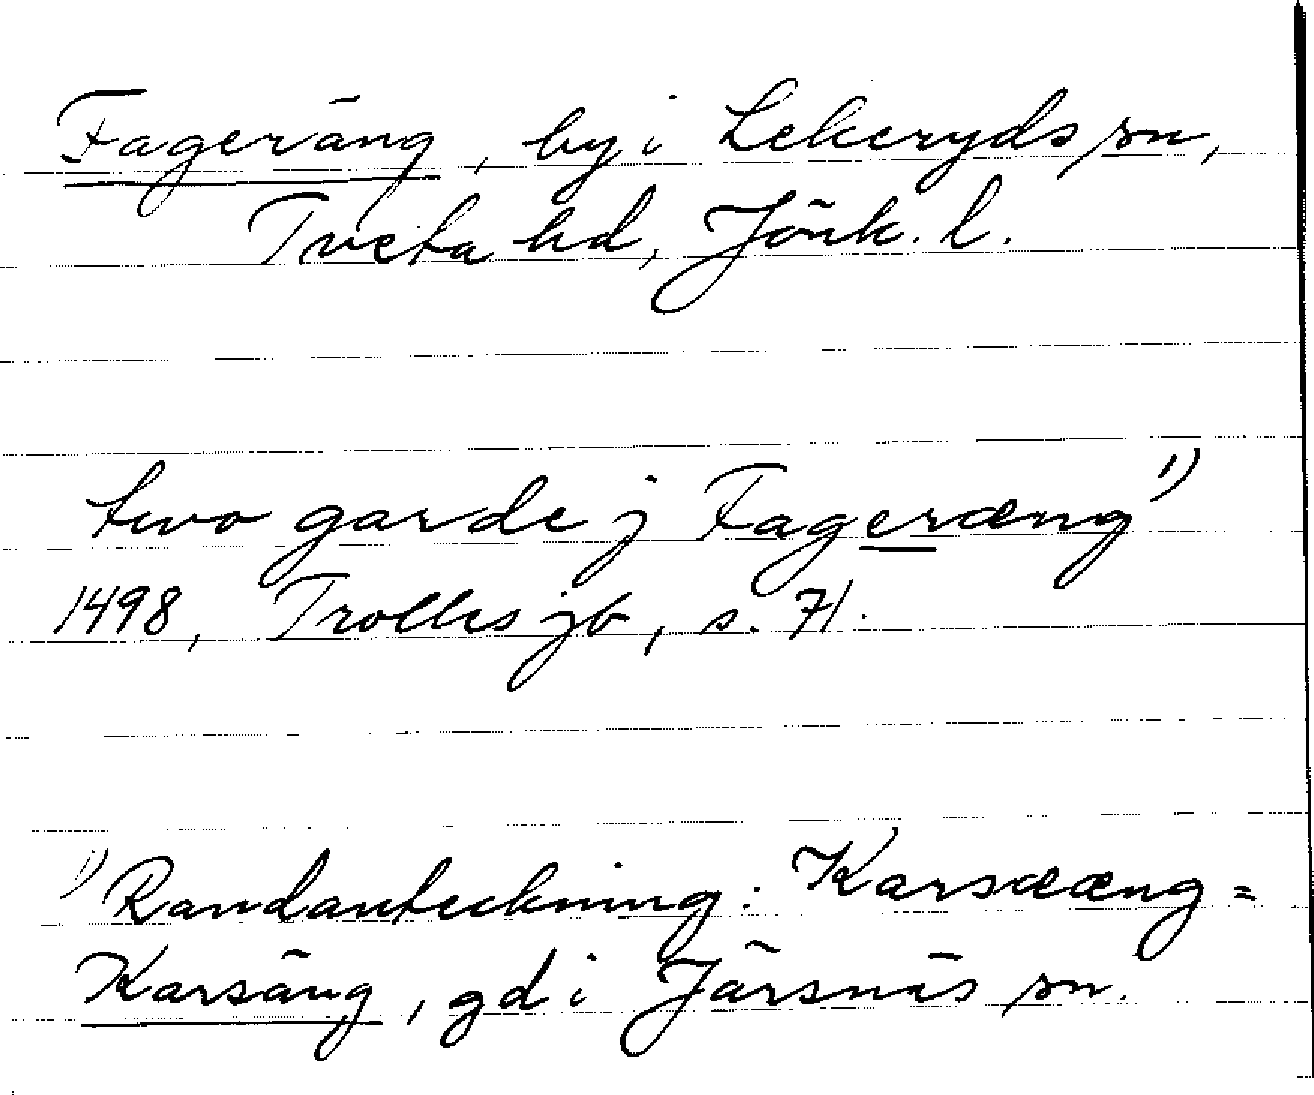 Fageräng, by i Lekeryds sn,
Tveta hd, Jönk. l.
two garde j Fageræng 1)
1498, Trolles jb, s. 71.
1) Randanteckning: Karsææng =
Karsäng, gd i Järsnäs sn.